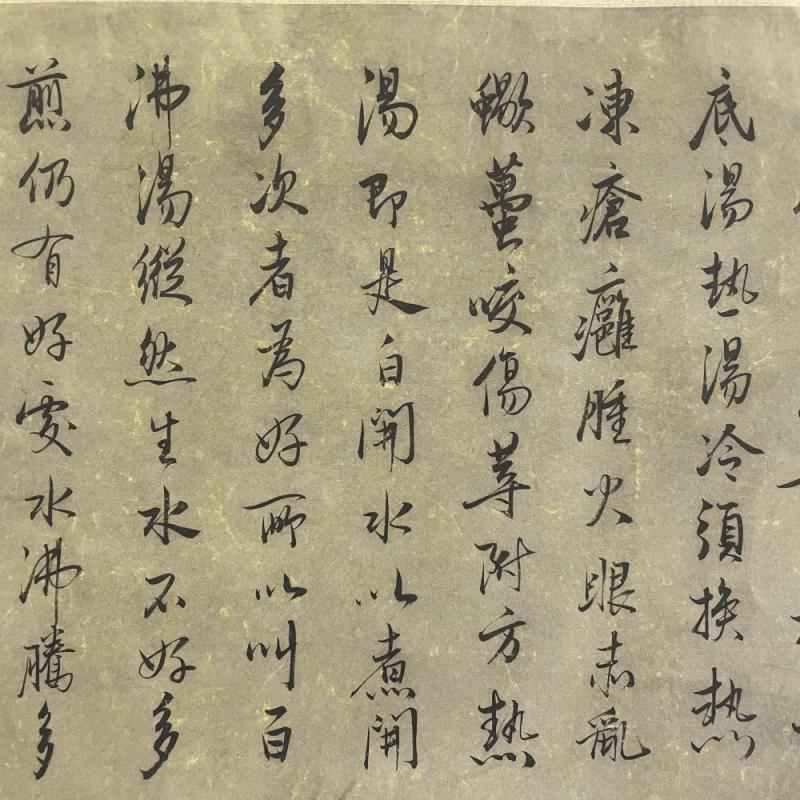 底湯熱湯冷須換熱
凍瘡癰腫火眼赤亂
蠍蠆咬傷等附方熱
湯即是白開水以煮開
多次者為好所以叫百
沸湯縱然生水不好多
煎仍有好處水沸騰多